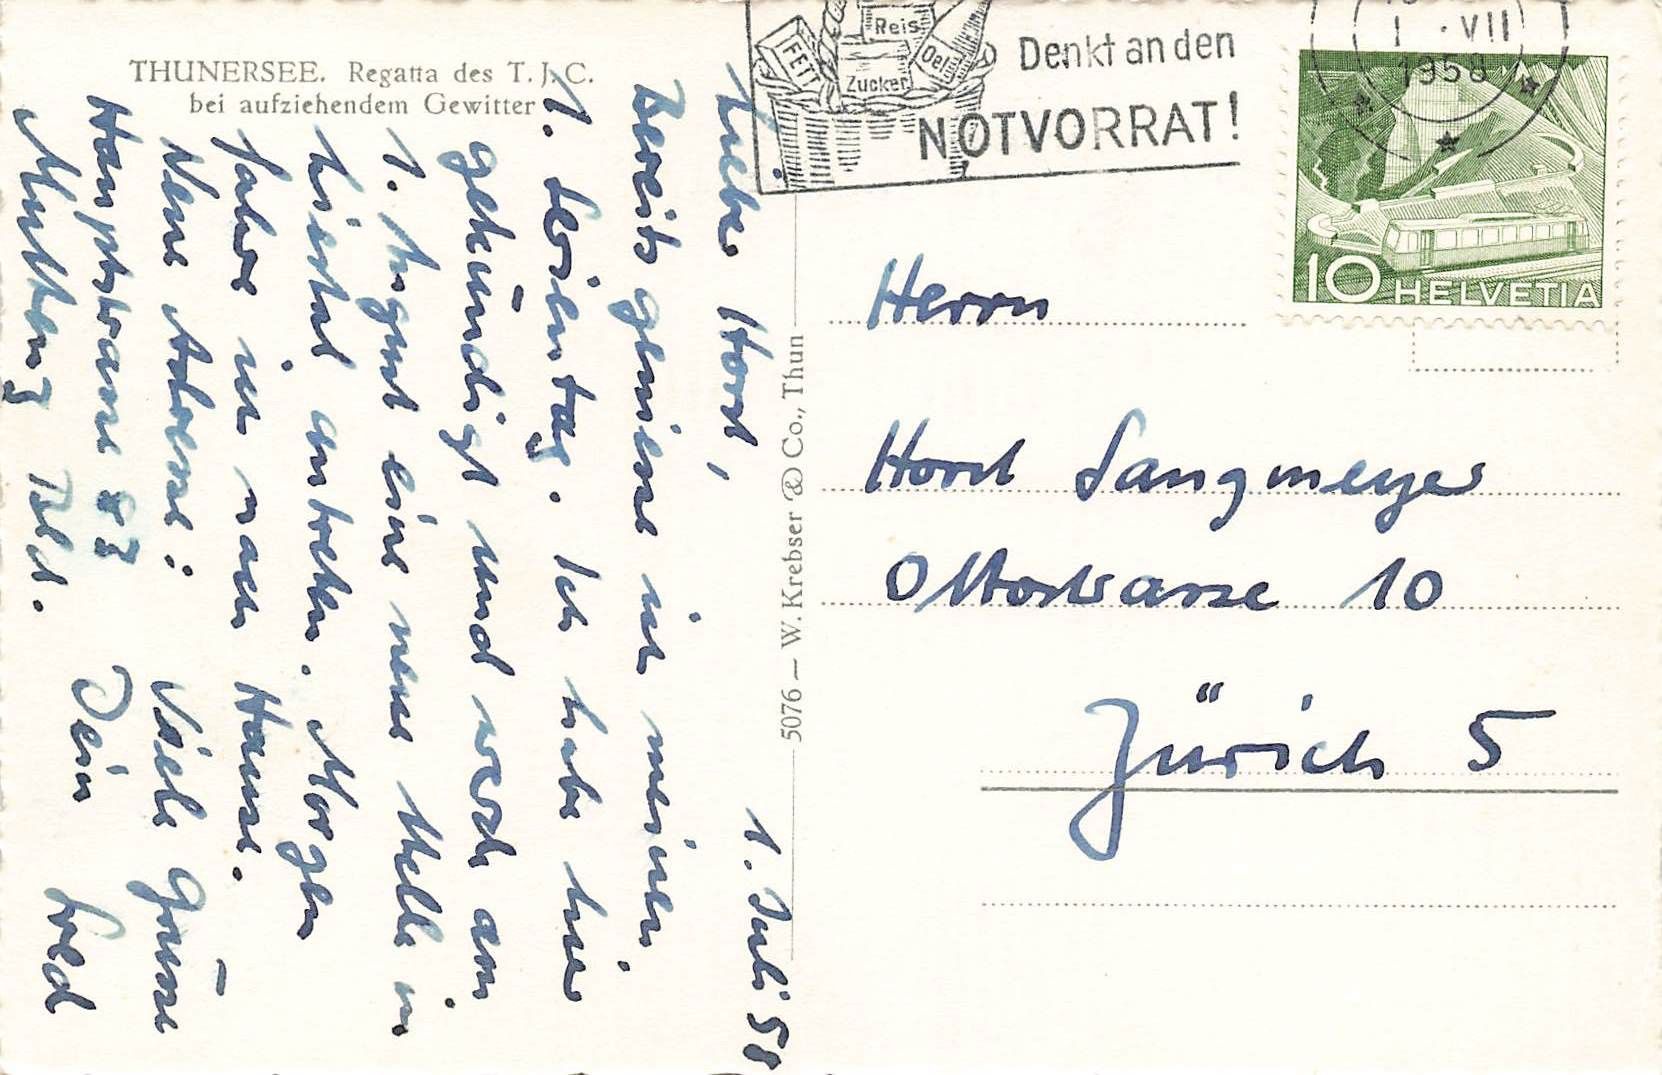 THUNERSEE. Regatta des T. J. C.
bei aufziehendem Gewitter
FETT
Reis
Zucker
Oel
Denkt an den
NOTVORRAT!
1 . VII
1958
10 HELVETIA
5076 — W. Krebser & Co., Thun
1. Juli 58
Lieber Horst,
Bereits geniesse ich meinen
1. Ferientag. Ich habe hier
gekündigt und werde am
1. August eine neue Stelle in
Liestal antreten. Morgen
fahre ich nach Hause.
Neue Adresse:
Hauptstrasse 87
Muttenz Bsld.
Viele Grüsse
Dein Fred
Herrn
Horst Langmeyer
Ottostrasse 10
Zürich 5